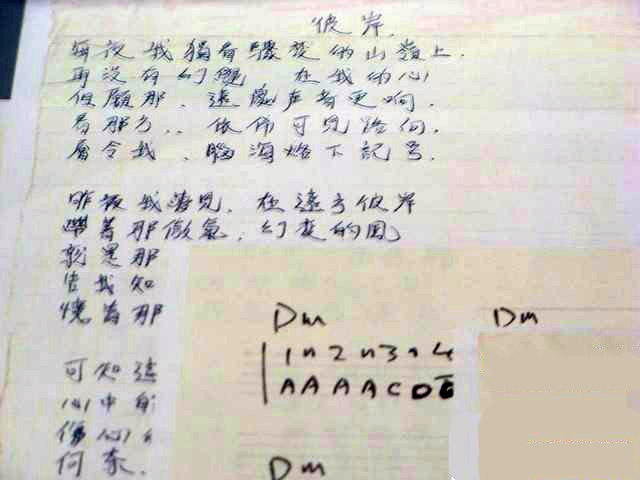 彼岸.
每夜我獨看驟変的山嶺上.
再沒有幻變 在我的心
但願那、遠處声音更响.
看那方.. 依稀可見路向.
令我、腦海烙下記号.
昨夜我望見, 在遠方彼岸
帶著那微氣, 幻変的風
就是那
告我知
那
可知遠
心中
傷心
何
Dm Dm
1 n 2 n 3 n 4
A A A A C D
Dm